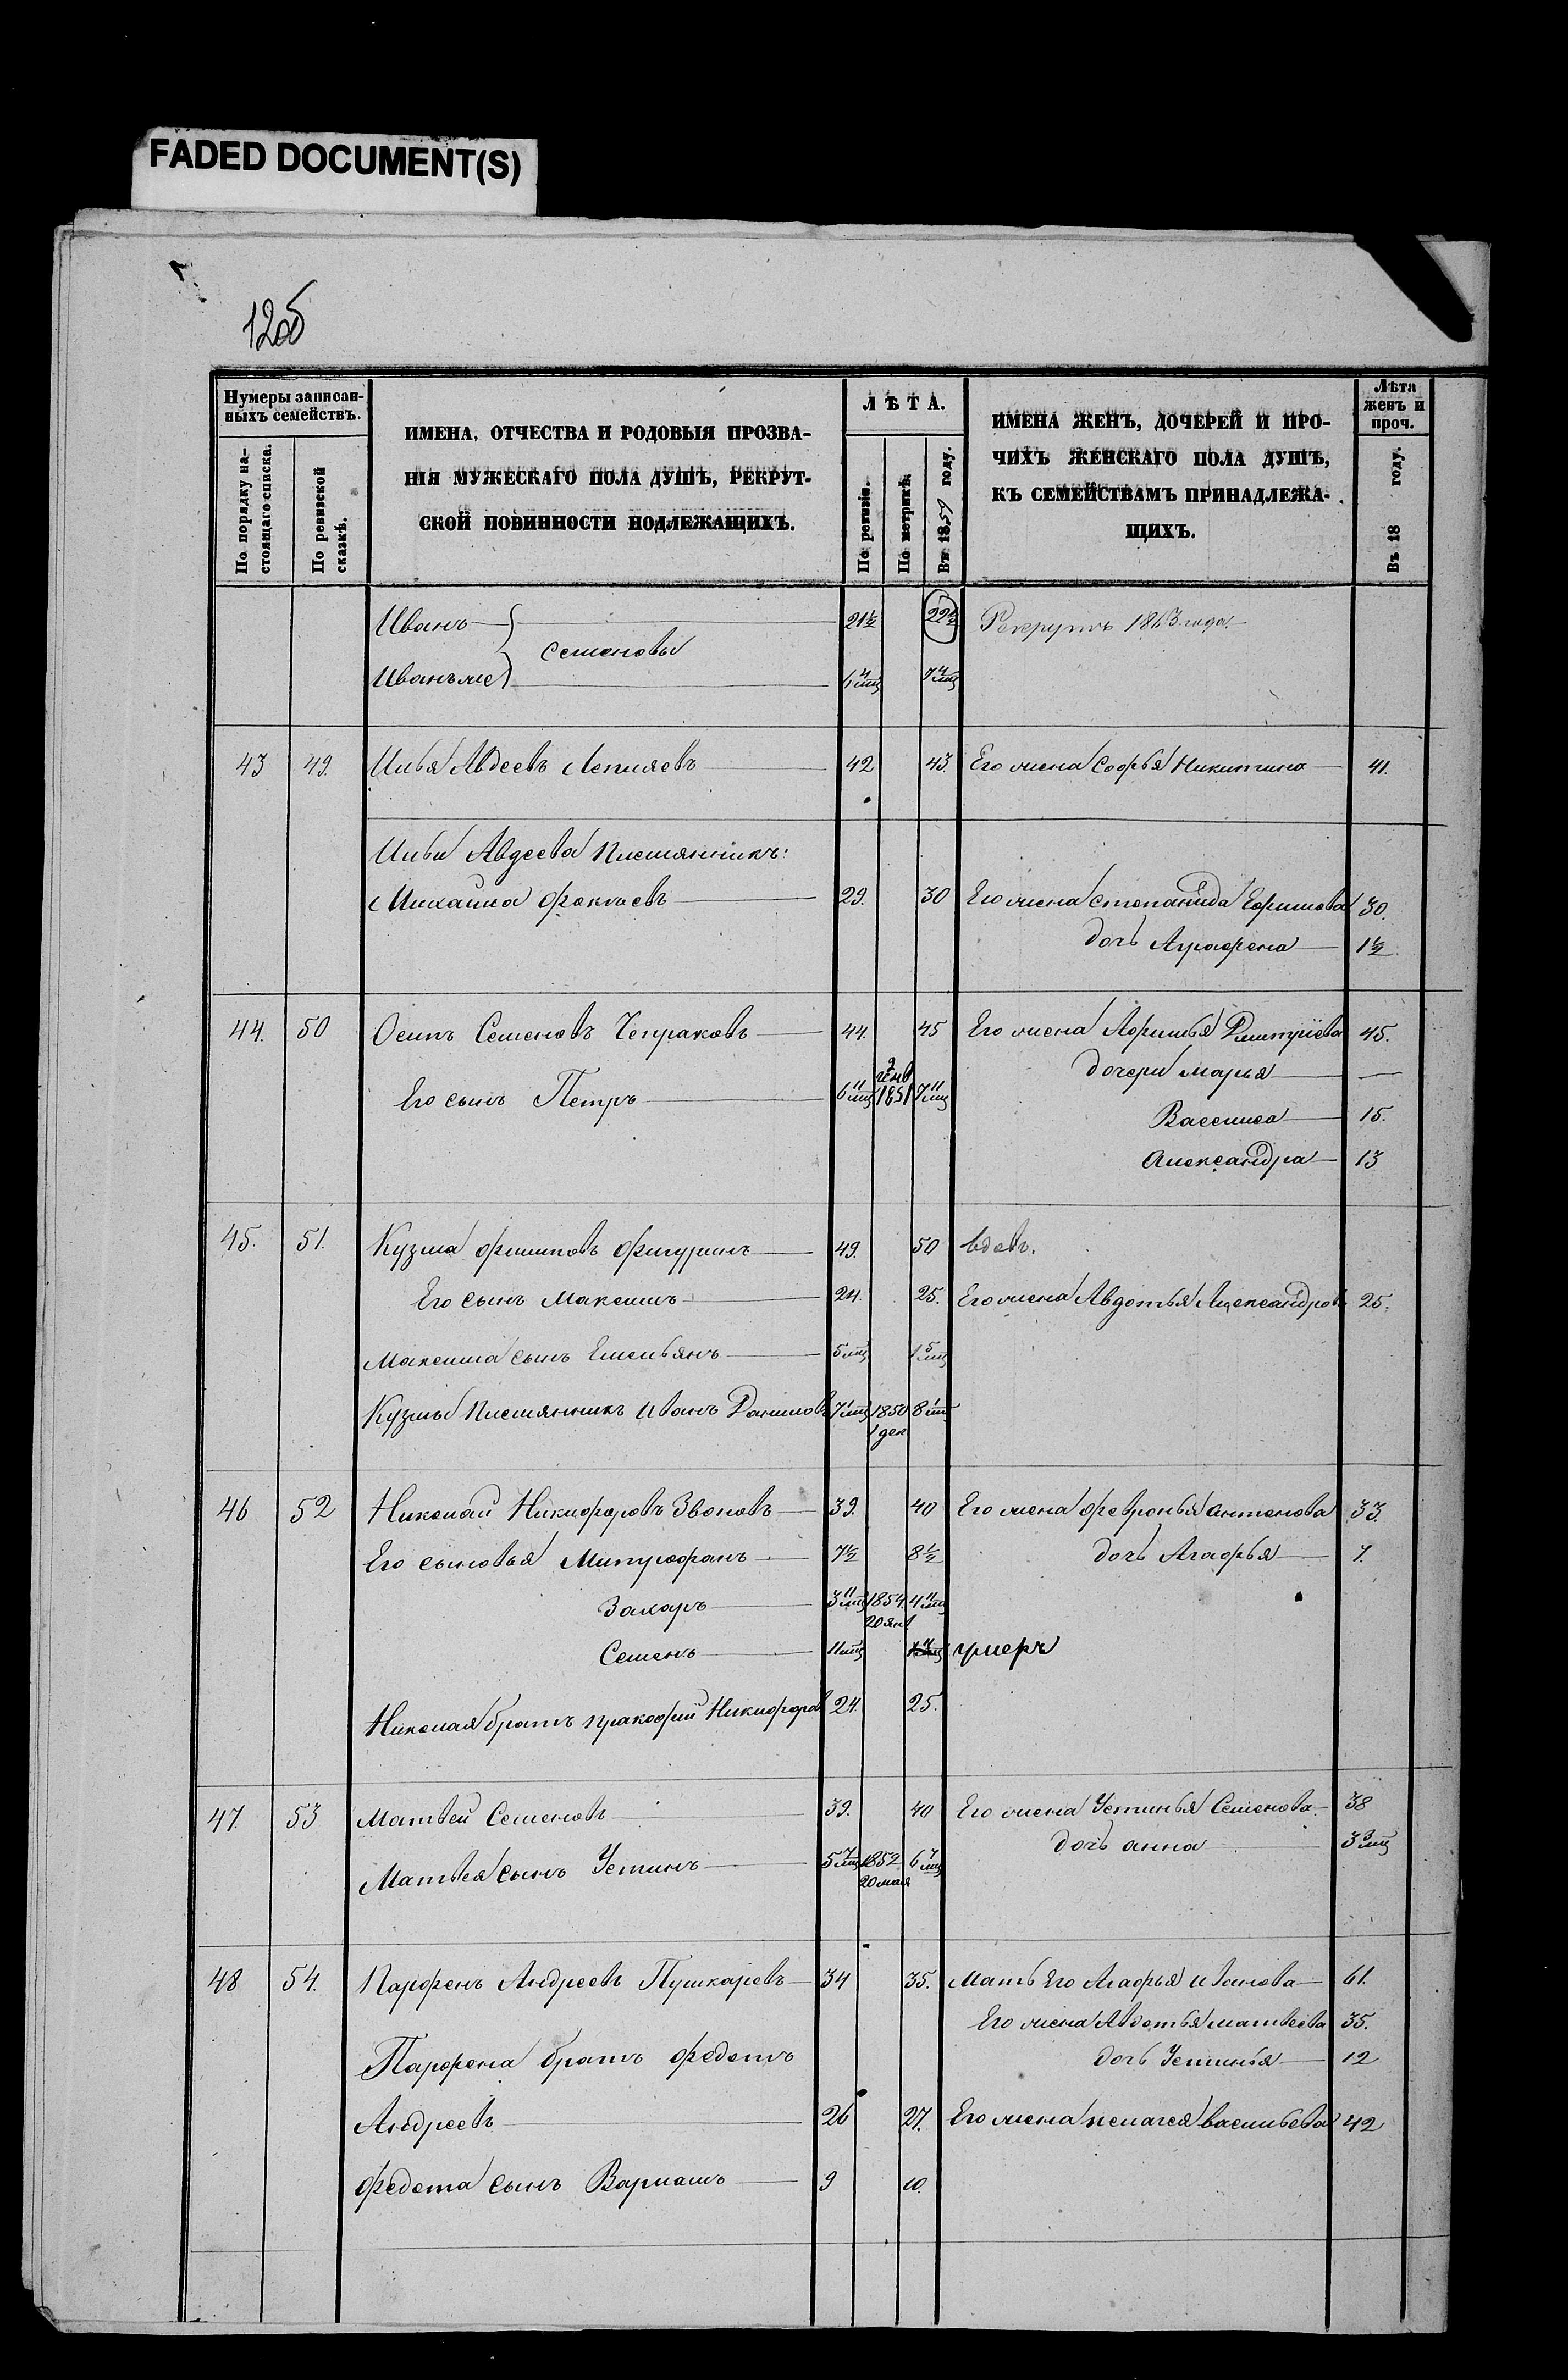 FADED DOCUMENT(S)
12об
Нумеры записан-
ныхъ семействъ.
По порядку на-
стоящаго списка.
По ревизской
сказкѣ.
ИМЕНА, ОТЧЕСТВА И РОДОВЫЯ ПРОЗВА-
НІЯ МУЖЕСКАГО ПОЛА ДУШЪ, РЕКРУТ-
СКОЙ ПОВИННОСТИ ПОДЛЕЖАЩИХЪ.
ЛѢТА.
По ревизіи.
По метрикѣ.
Въ 1859 году.
ИМЕНА ЖЕНЪ, ДОЧЕРЕЙ И ПРО-
ЧИХЪ ЖЕНСКАГО ПОЛА ДУШЪ,
КЪ СЕМЕЙСТВАМЪ ПРИНАДЛЕЖА-
ЩИХЪ.
Лѣта
женъ и
проч.
Въ 18 году.
Иванъ 21½ 22½ Рекрутъ 1863 года
Семеновы
Иванъ же 6 4 мц 7 4 мц
43 49. Илья Авдеевъ 42 43. Его жена Софья Никитина 41.
Ильи Авдеева Племянникъ:
Михаила Фоктисвъ 29. 30 Его жена Степанида Ефимова 30.
дочь Аграфена 1½
44. 50 Осипъ Семеновъ Чепраковъ 44. 45 Его жена Афимья Дмитріева 45.
дочери Марья —
Его сынъ Петръ 6 11 мц 1851 7 11 мц
Василиса 15.
Александра 13
45. 51. Кузма Филиповъ Фигуринъ 49. 50 вдовъ.
Его сынъ Максимъ 24. 25. Его жена Авдотья Александров 25.
Максима сынъ Емельянъ 5 мц 1 5 мц
Кузмы Племянникъ Иванъ Данилов 7 1 мц 1850 8 1 мц
1 дек
46 52 Николай Никифоровъ Звоновъ 39. 40 Его жена Февронья Антонова 33.
Его сыновья Митрофанъ 7½ 8½ дочь Агафья 7.
Захаръ 3 11 мц 1854. 4 11 мц
20 янв
Семенъ 11 мц 1 11 мц умеръ
Николая братъ Пракофій Никифоров 24. 25.
47. 53 Матвей Семеновъ 39. 40 Его жена Устинья Семенова 38
дочь Анна 3 3 мц
Матвея сынъ Устинъ 5 7 мц 1852 6 7 мц
20 мая
48 54. Парфенъ Андреевъ Пушкаревъ 34 35. Мать Его Агафья Иванова 61.
Его жена Авдотья Матвеева 35.
Парфена братъ Федотъ дочь Устинья 12
Андреевъ 26 27. Его жена Пелагея Васильева 42
Федота сынъ Варламъ 9 10.